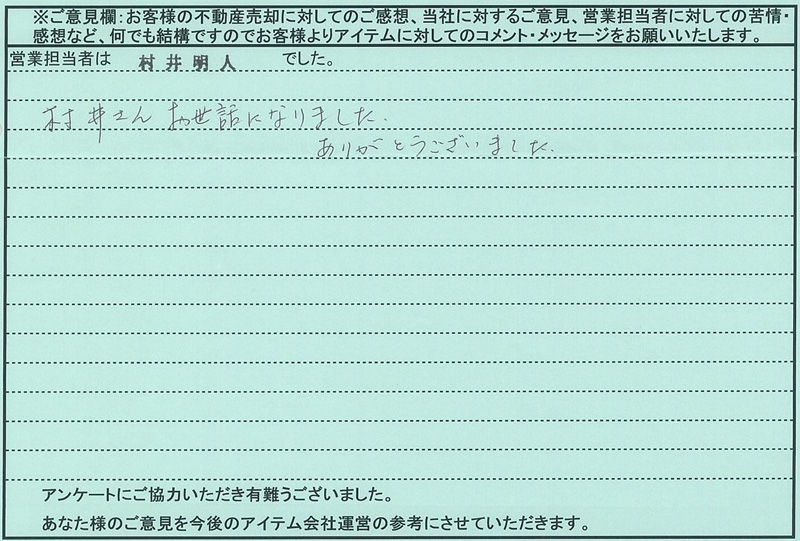 ※ご意見欄：お客様の不動産売却に対してのご感想、当社に対するご意見、営業担当者に対しての苦情・
感想など、何でも結構ですのでお客様よりアイテムに対してのコメント・メッセージをお願いいたします。
営業担当者は 村井明人 でした。
村井さん お世話になりました.
ありがとうございました.
アンケートにご協力いただき有難うございました。
あなた様のご意見を今後のアイテム会社運営の参考にさせていただきます。